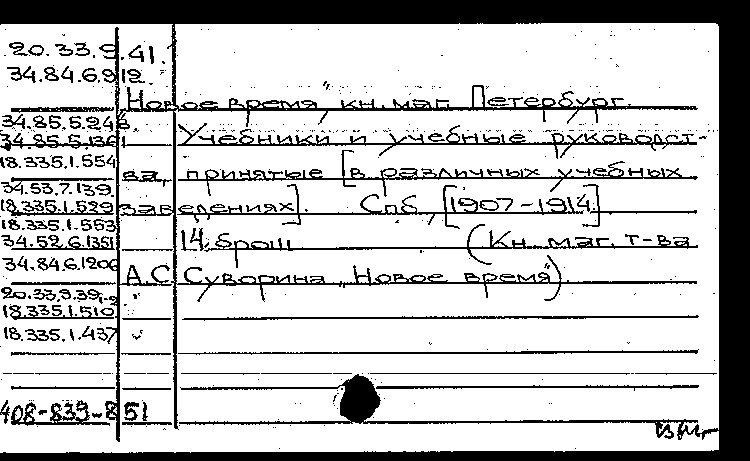 20.33.9.41.
34.84.6.912.
"Новое время", кн. маг. Петербург.
34.85.5.246.
34.85.5.1361 Учебники и учебные руководст-
18.335.1.554 ва, принятые [в различных учебных
34.53.7.139.
18.335.1.529 заведениях]. Спб., [1907-1914].
18.335.1.553
34.52.6.1351 14 брош. (Кн. маг. т-ва
34.84.6.1206 А.С. Суворина „Новое время").
20.33.9.39,
18.335.1.510
18.335.1.437
408-839-851